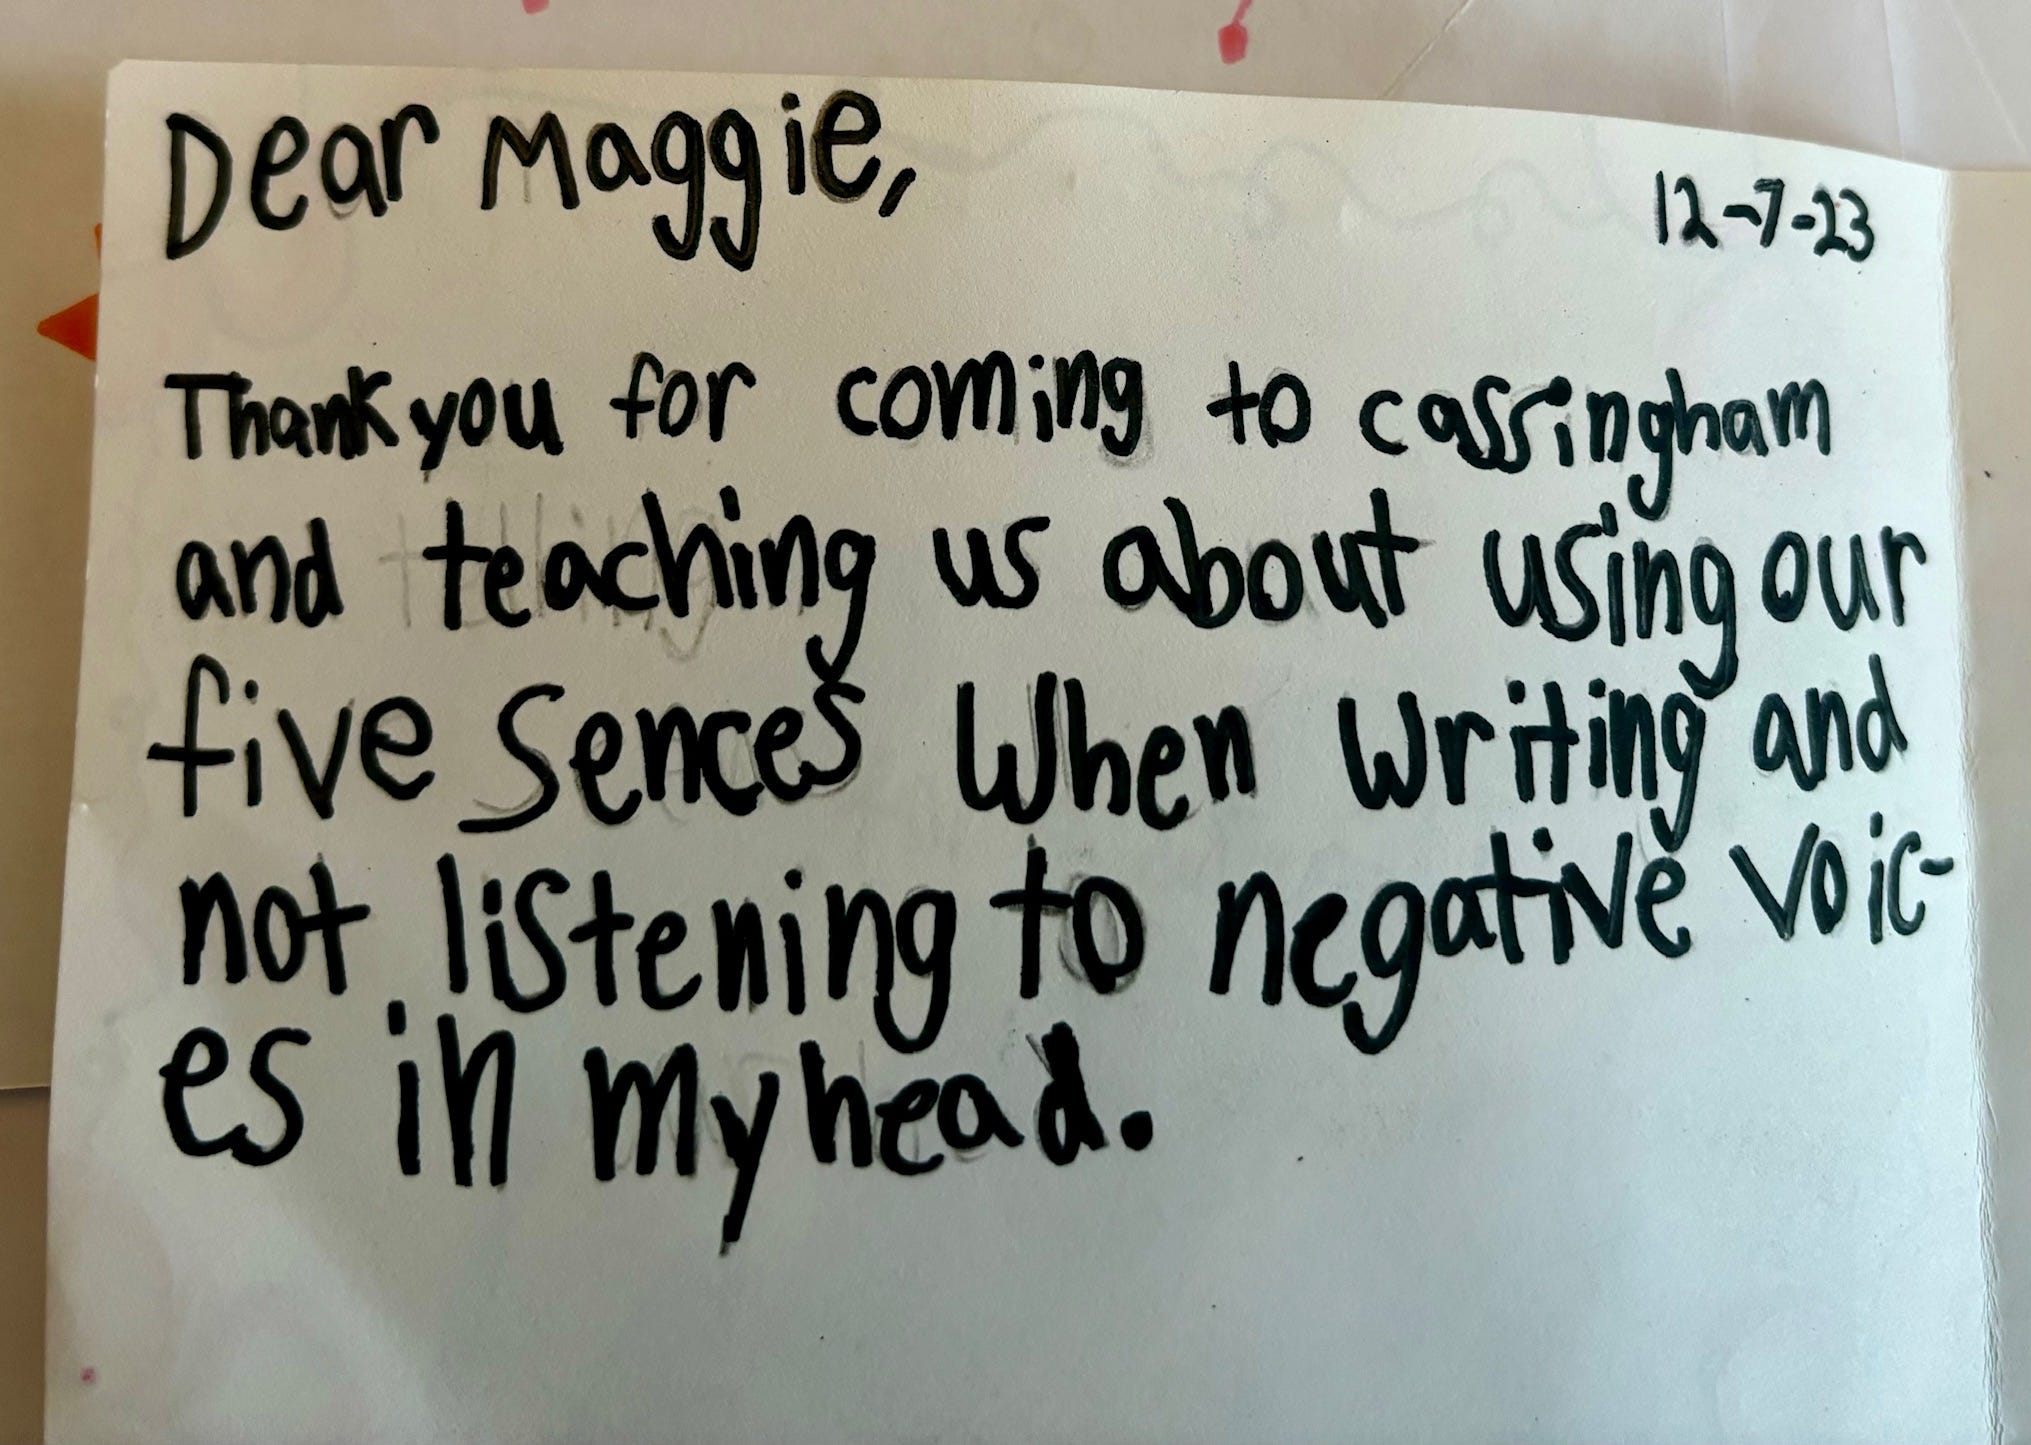 Dear Maggie,
12-7-23
Thank you for coming to cassingham
and teaching us about using our
five sences when writing and
not listening to negative voic-
es in my head.